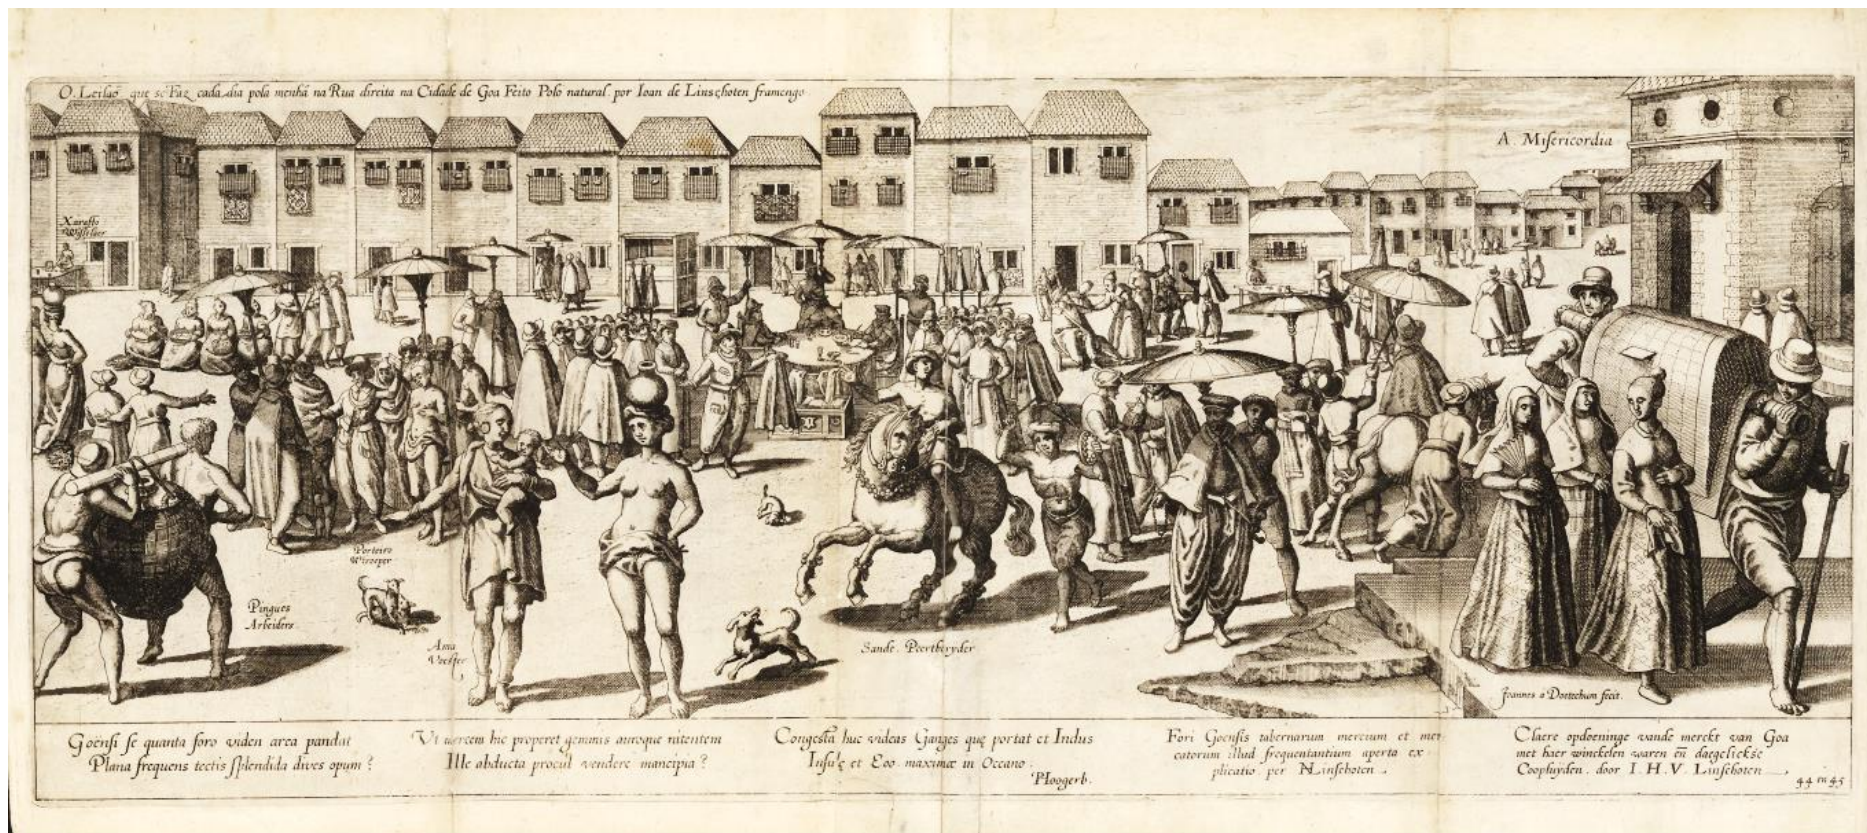 O. Leilaõ que se Faz cada dia pola menhã na Rua direita na Cidade de Goa Feito Polo natural por Ioan de Linschoten framengo
A. Misericordia
Xaraffo
Wisselaer
Porteiro
Wtroeper
Pingues
Arbeiders
Ama
Voester
Sande. Peertberyder
Joannes a Doetechum fecit.
Goënsi se quanta foro viden area pandat
Plana frequens tectis splendida dives opum?
Vt mercem hic properet gemmis auroque nitentem
Ille abducta procul vendere mancipia?
Congesta huc videas Ganges que portat et Indus
Insulę et Eoo maximæ in Oceano.
PHoogerb.
Fori Goensis tabernarum mercium et mer
catorum illud frequentantium aperta ex
plicatio per Linschoten
Claere opdoeninge vande merckt van Goa
met haer winckelen waren eñ dagelickse
Coopluyden. door I. H. V. Linschoten
44 en 45